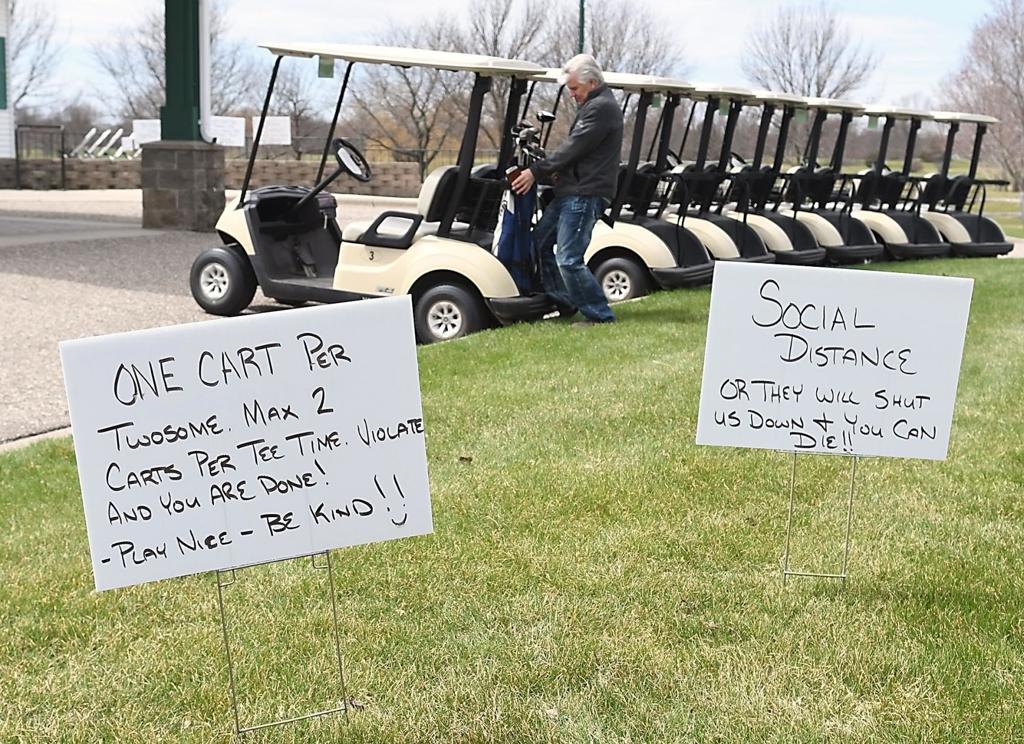 ONE CART PER
TWOSOME. MAX 2
CARTS PER TEE TIME. VIOLATE
AND YOU ARE DONE!
-PLAY NICE - BE KIND!!
SOCIAL
DISTANCE
OR THEY WILL SHUT
US DOWN & YOU CAN
DIE!!
3